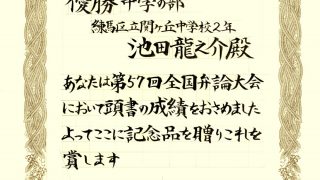 優勝 中学の部
練馬区立開ヶ丘中学校2年
池田龍之介殿
あなたは第57回全国弁論大会
において頭書の成績をおさめました
よってここに記念品を贈りこれを
賞します